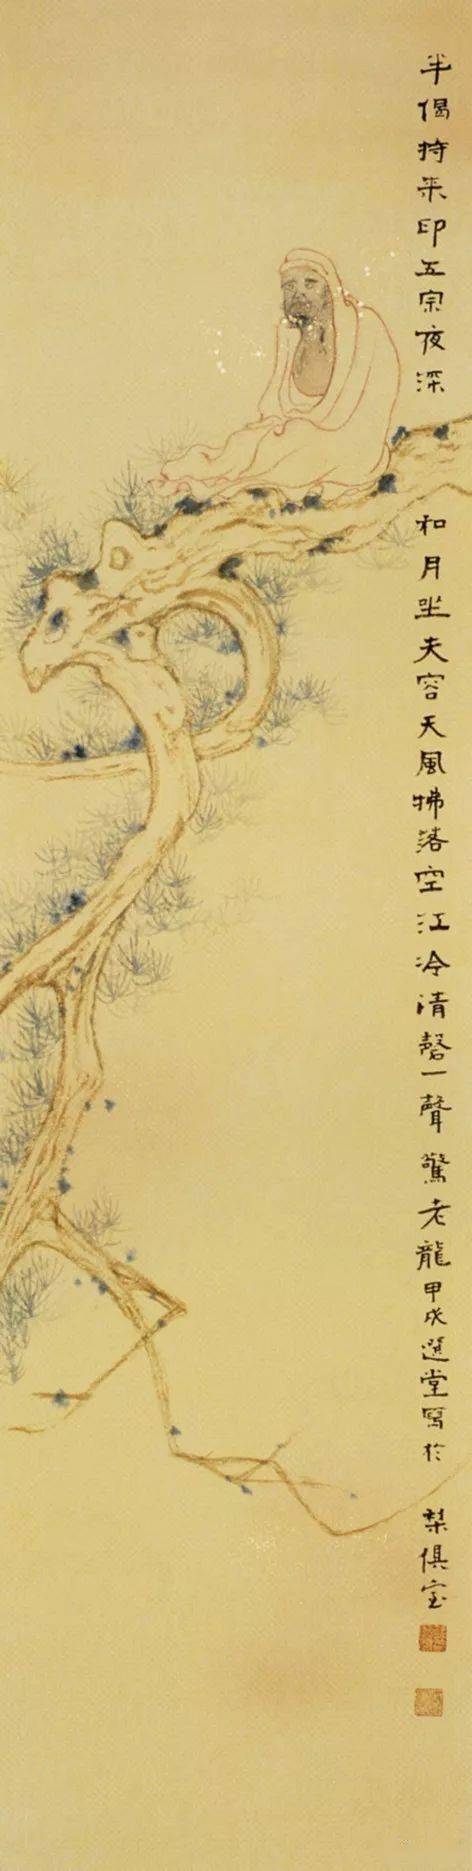 半偈持來印五宗夜深和月坐夫容天風拂落空江冷清磬一聲驚老龍甲戌選堂寫於梨俱室